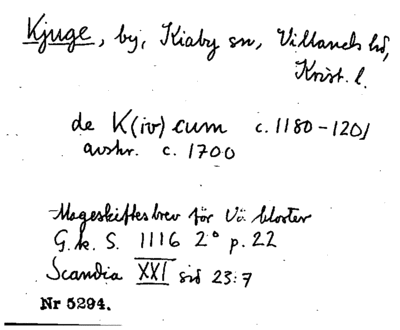 Kjuge, by, Kiaby sn, Villands hd,
Krist. l.
de K(iv)cum c. 1180-1201
avskr. c. 1700
Mageskiftesbrev för Vä kloster
G.k.S. 1116 2° p. 22
Scandia XXI sid 23:7
Nr 5294.